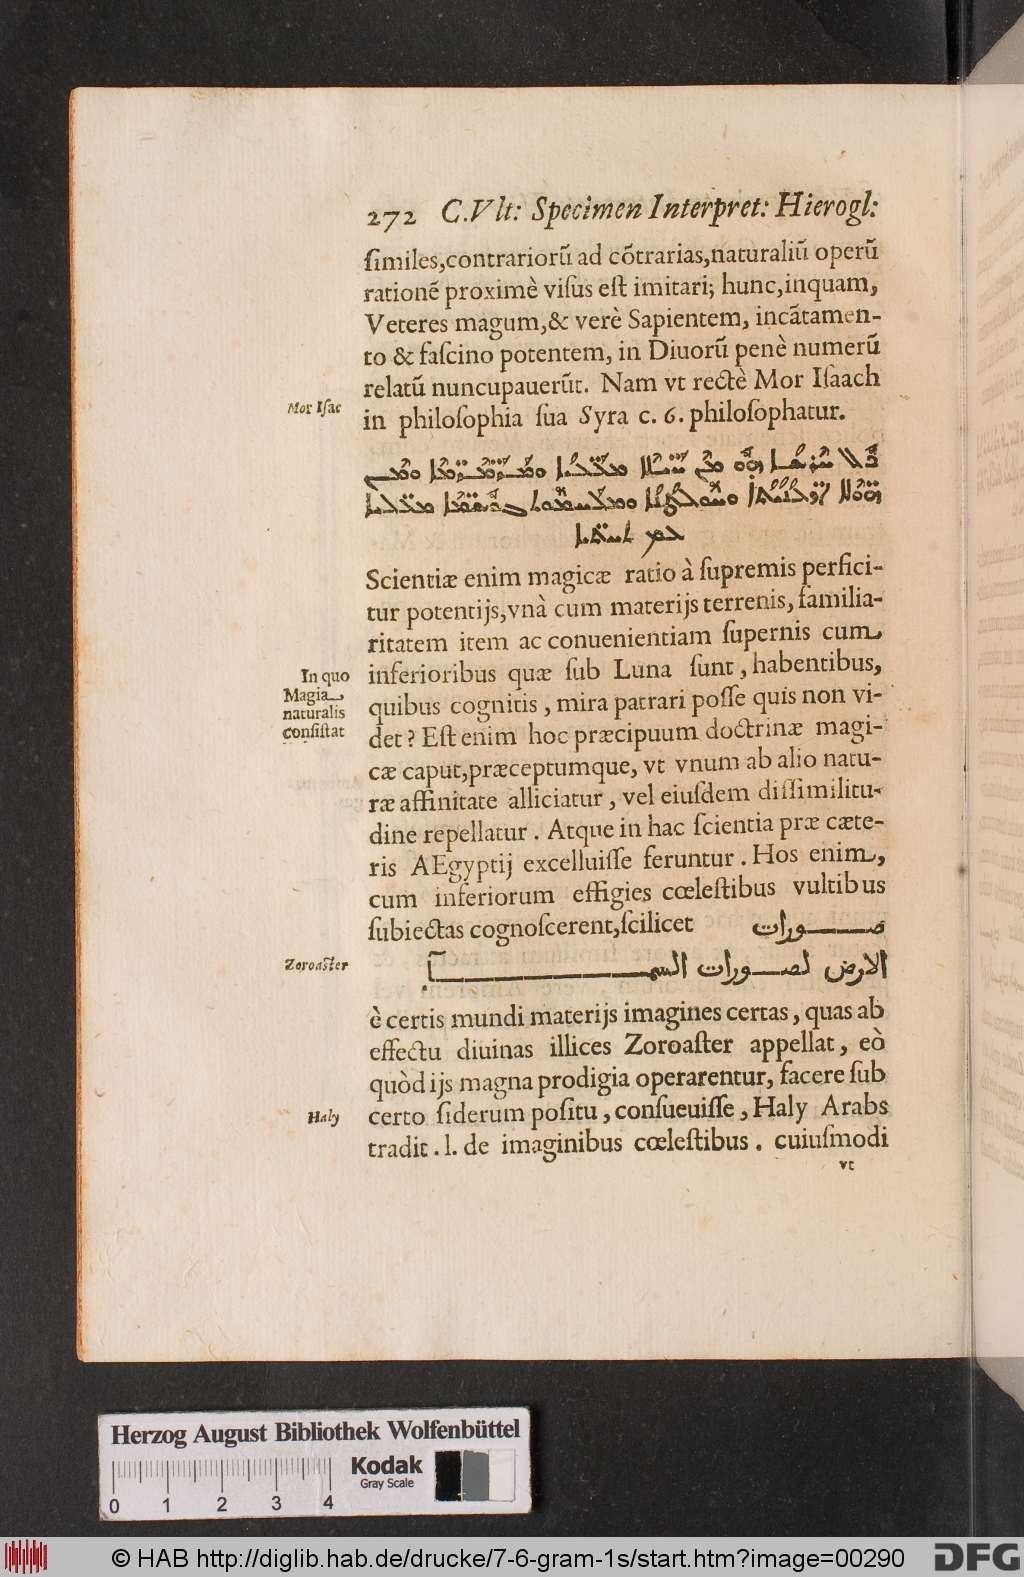 272 C.Vlt: Specimen Interpret: Hierogl:
ſimiles,contrariorũ ad cõtrarias,naturaliũ operũ
rationẽ proximè viſus eſt imitari; hunc,inquam,
Veteres magum,& verè Sapientem, incãtamen-
to & faſcino potentem, in Diuorũ penè numerũ
relatũ nuncupauerũt. Nam vt rectè Mor Iſaach
Mor Iſac
in philoſophia ſua Syra c. 6. philoſophatur.
Scientiæ enim magicæ ratio à ſupremis perfici-
tur potentijs,vnà cum materijs terrenis, familia-
ritatem item ac conuenientiam ſupernis cum
inferioribus quæ ſub Luna ſunt, habentibus,
quibus cognitis, mira patrari poſſe quis non vi-
det? Eſt enim hoc præcipuum doctrinæ magi-
In quo
Magia
naturalis
conſiſtat
cæ caput,præceptumque, vt vnum ab alio natu-
ræ affinitate alliciatur, vel eiuſdem diſſimilitu-
dine repellatur. Atque in hac ſcientia præ cæte-
ris AEgyptij excelluiſſe feruntur. Hos enim,
cum inferiorum effigies cœleſtibus vultibus
ſubiectas cognoſcerent,ſcilicet صـــورات
الارض لصـورات السمـــا
Zoroaſter
è certis mundi materijs imagines certas, quas ab
effectu diuinas illices Zoroaſter appellat, eò
quòd ijs magna prodigia operarentur, facere ſub
certo ſiderum poſitu, conſueuiſſe, Haly Arabs
Haly
tradit. l. de imaginibus cœleſtibus. cuiuſmodi
vt
Herzog August Bibliothek Wolfenbüttel
Kodak
Gray Scale
0 1 2 3 4
© HAB http://diglib.hab.de/drucke/7-6-gram-1s/start.htm?image=00290
DFG